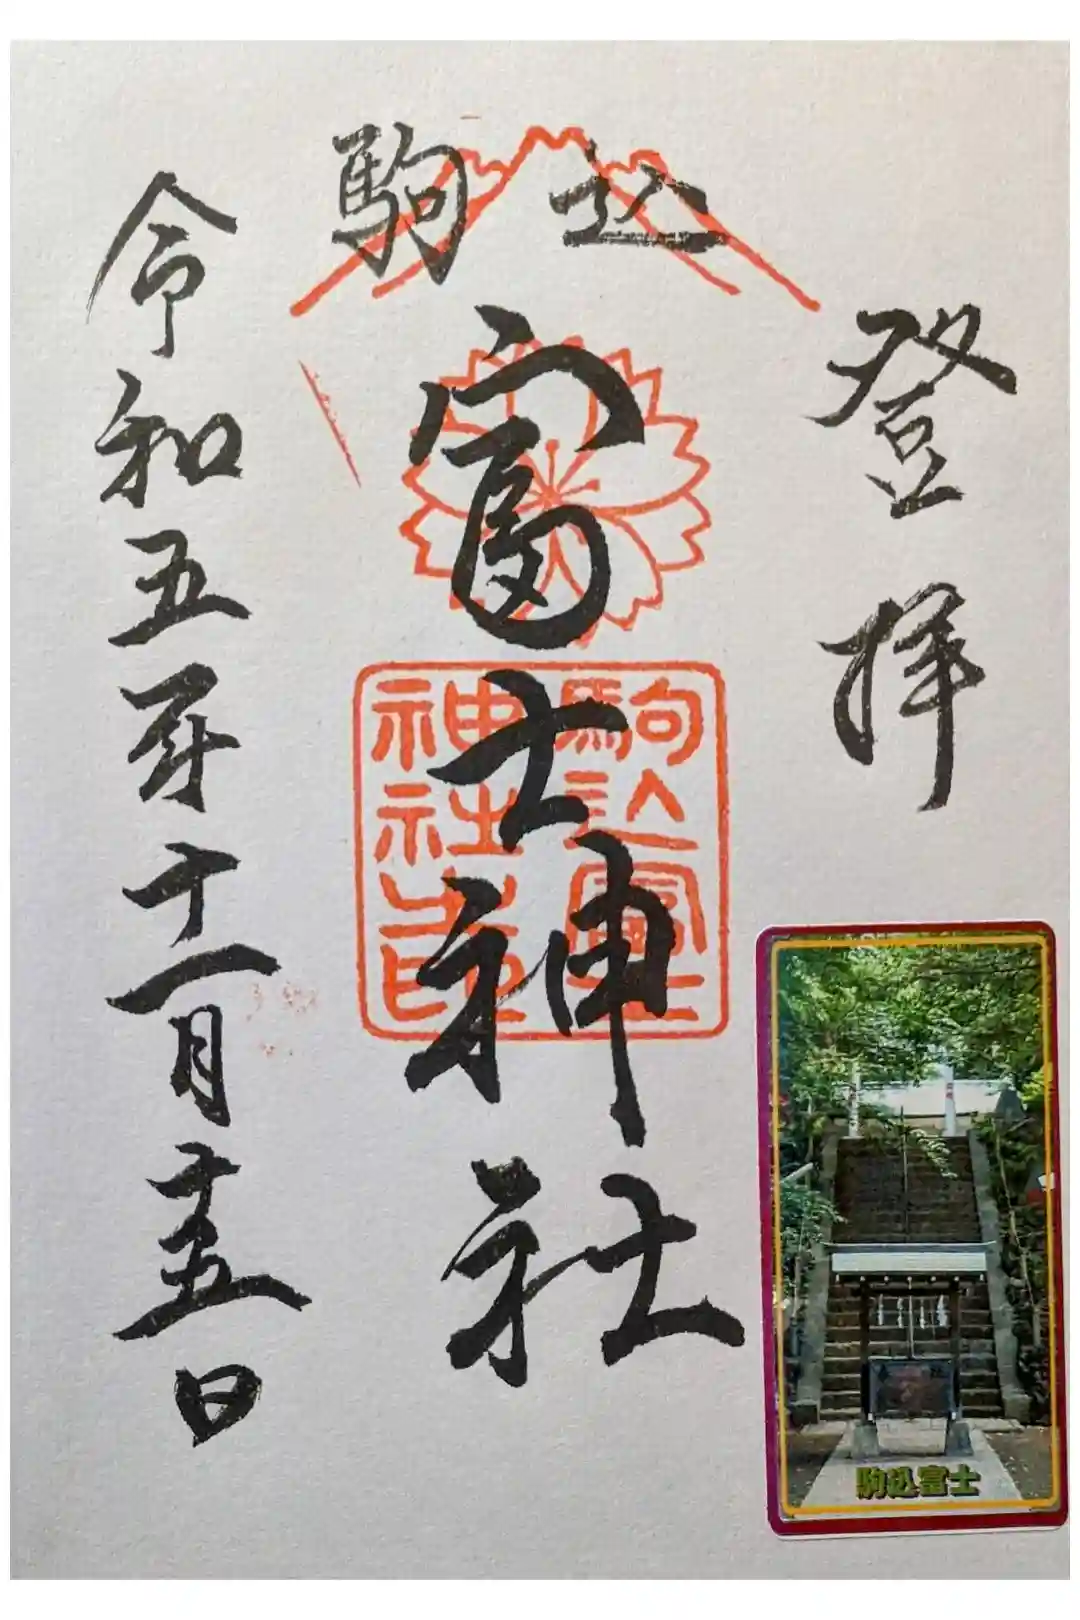 登拝
駒込
富士神社
駒込富士
神社之印
令和五年十一月十五日
駒込富士